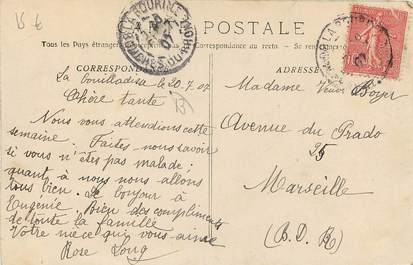 15 €
POSTALE
Tous les Pays étrangers
au recto. — Se renseigner
CORRESPONDANCE
ADRESSE
La Bouilladisse 20.7.07
Chère tante
Nous vous attendions cette
semaine. Faites nous savoir
si vous n'êtes pas malade;
quant à nous nous allons
tous bien. Le bonjour à
Eugénie. Bien des compliments
de toute la famille
Votre nièce qui vous aime
Rose Long
Madame Veuve Boyer
Avenue du Prado
25
Marseille
(B. D. R)